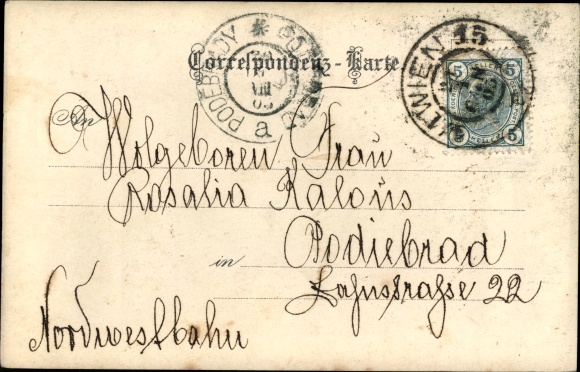 Correspondenz-Karte
PODĚBRADY
a
WIEN
15
5 5
5 5
An Wolgeboren Frau
Rosalia Kalous
in Podiebrad
Bahnstrahse 22
Nordwestbahn